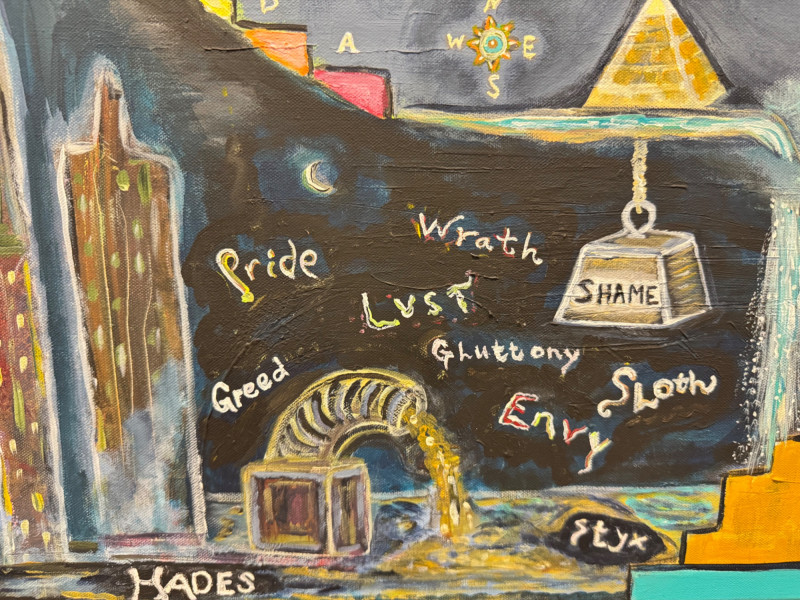 A
N
W E
S
Wrath
Pride
SHAME
Lust
Gluttony
Greed
Sloth
Envy
Styx
HADES